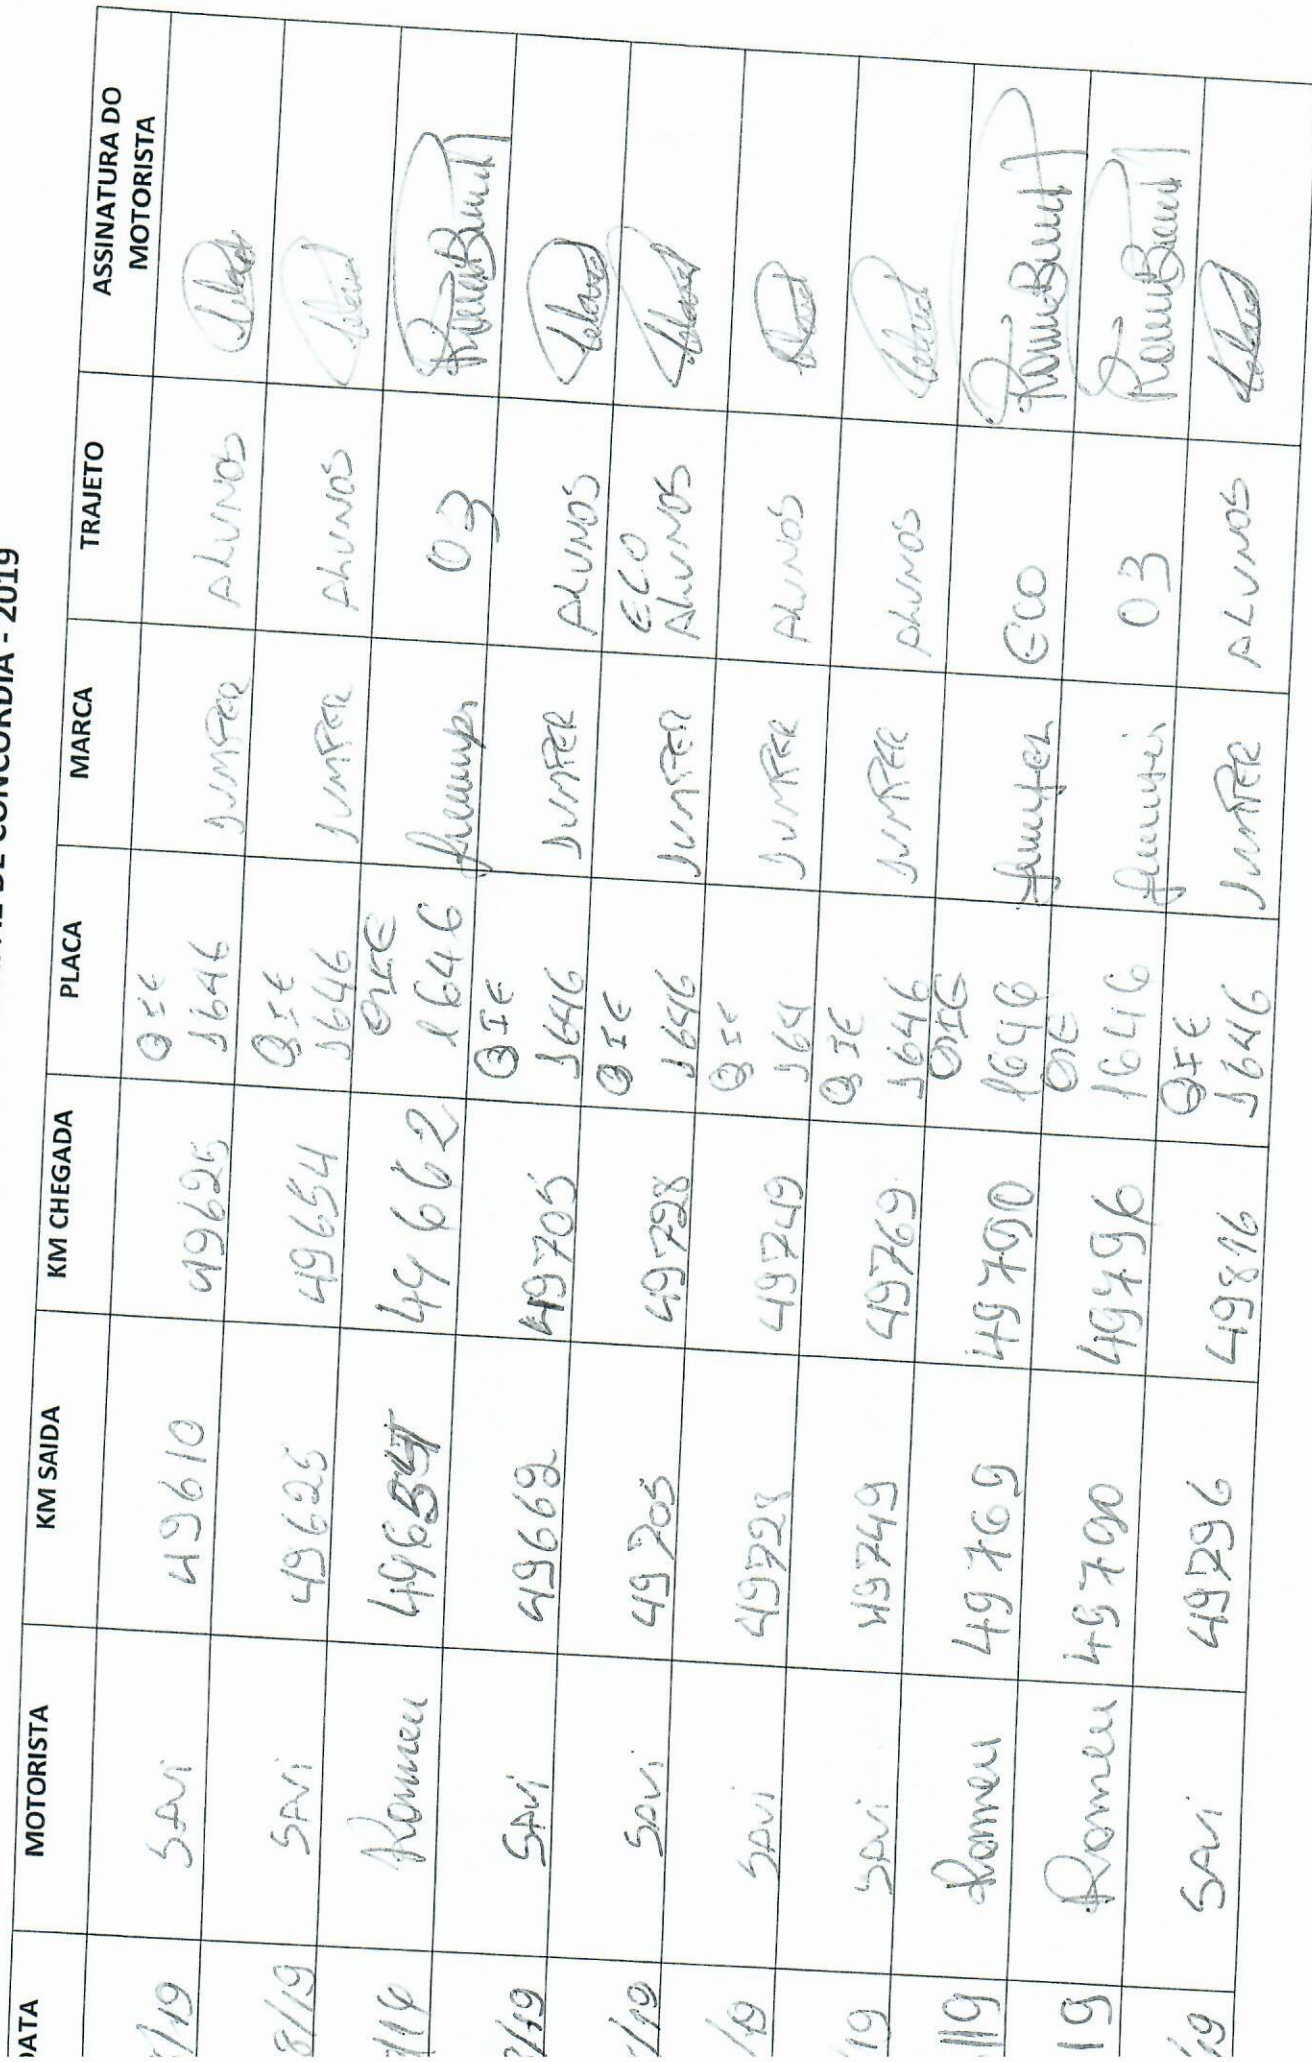 DE CONCORDIA - 2019
DATA MOTORISTA KM SAIDA KM CHEGADA PLACA MARCA TRAJETO ASSINATURA DO MOTORISTA
/19 SAVI 49610 49625 QIE 1646 JUMPER ALUNOS
8/19 SAVI 49625 49654 QIE 1646 JUMPER ALUNOS
Romeu 49654 44662 QIE 1646 Jumper 03
/19 SAVI 49662 49705 QIE 1646 JUMPER ALUNOS
/19 SAVI 49705 49728 QIE 1646 JUMPER ECO ALUNOS
/19 SAVI 49728 49749 QIE 164 JUMPER ALUNOS
/19 SAVI 49749 49769 QIE 1646 JUMPER ALUNOS
/19 Romeu 49769 49790 QIE 1646 Jumper ECO
19 Romeu 49790 49796 QIE 1646 Jumper 03
/19 SAVI 49796 49816 QIE 1646 JUMPER ALUNOS